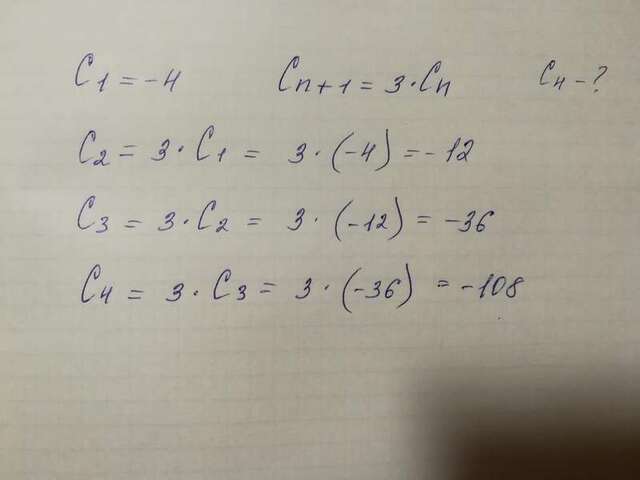 C1 = -4 Cn+1 = 3·Cn C4 - ?
C2 = 3·C1 = 3·(-4) = -12
C3 = 3·C2 = 3·(-12) = -36
C4 = 3·C3 = 3·(-36) = -108